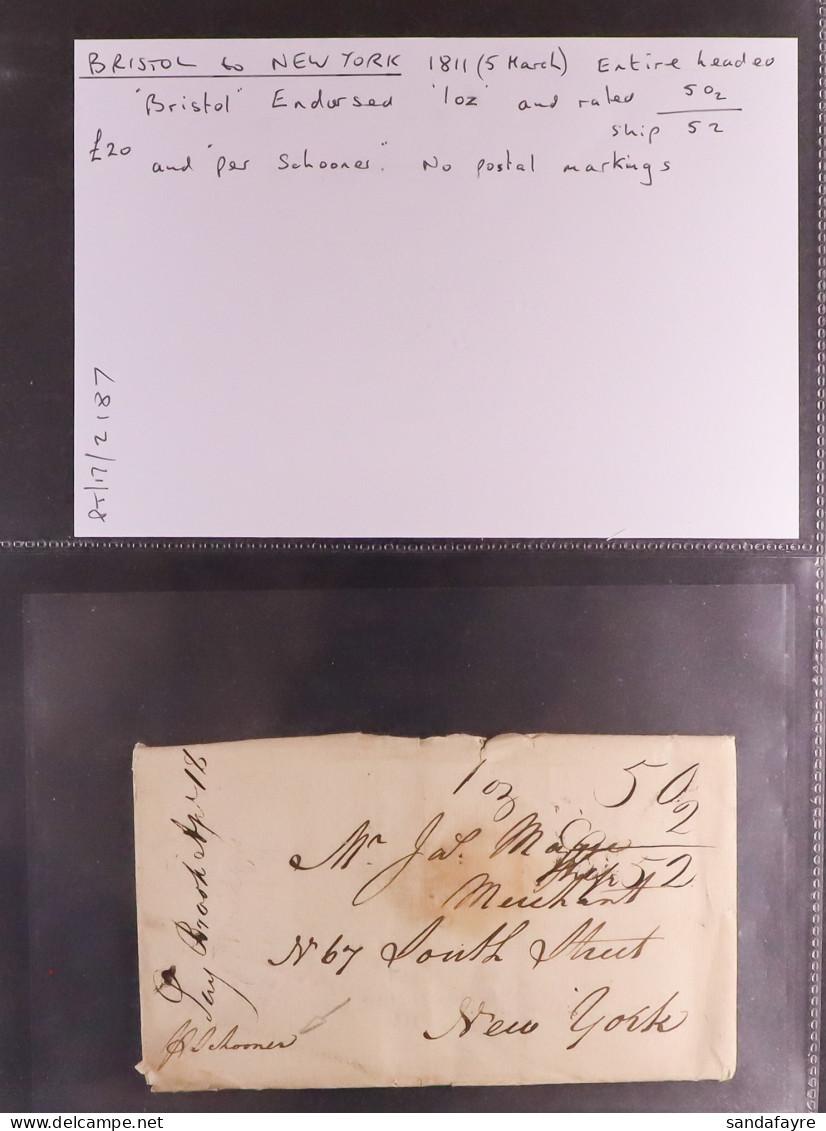 BRISTOL to NEW YORK 1811 (5 March) Entire headed
"Bristol" Endorsed '1oz' and rated 502
ship 52
£20 and "per Schooner". No postal markings
PT/17/2187
1 oz 50
2
Mr. Jas. Magee
Ship 52
Merchant
No 67 South Street
New York
Apr 18
P Schooner
sandafayre